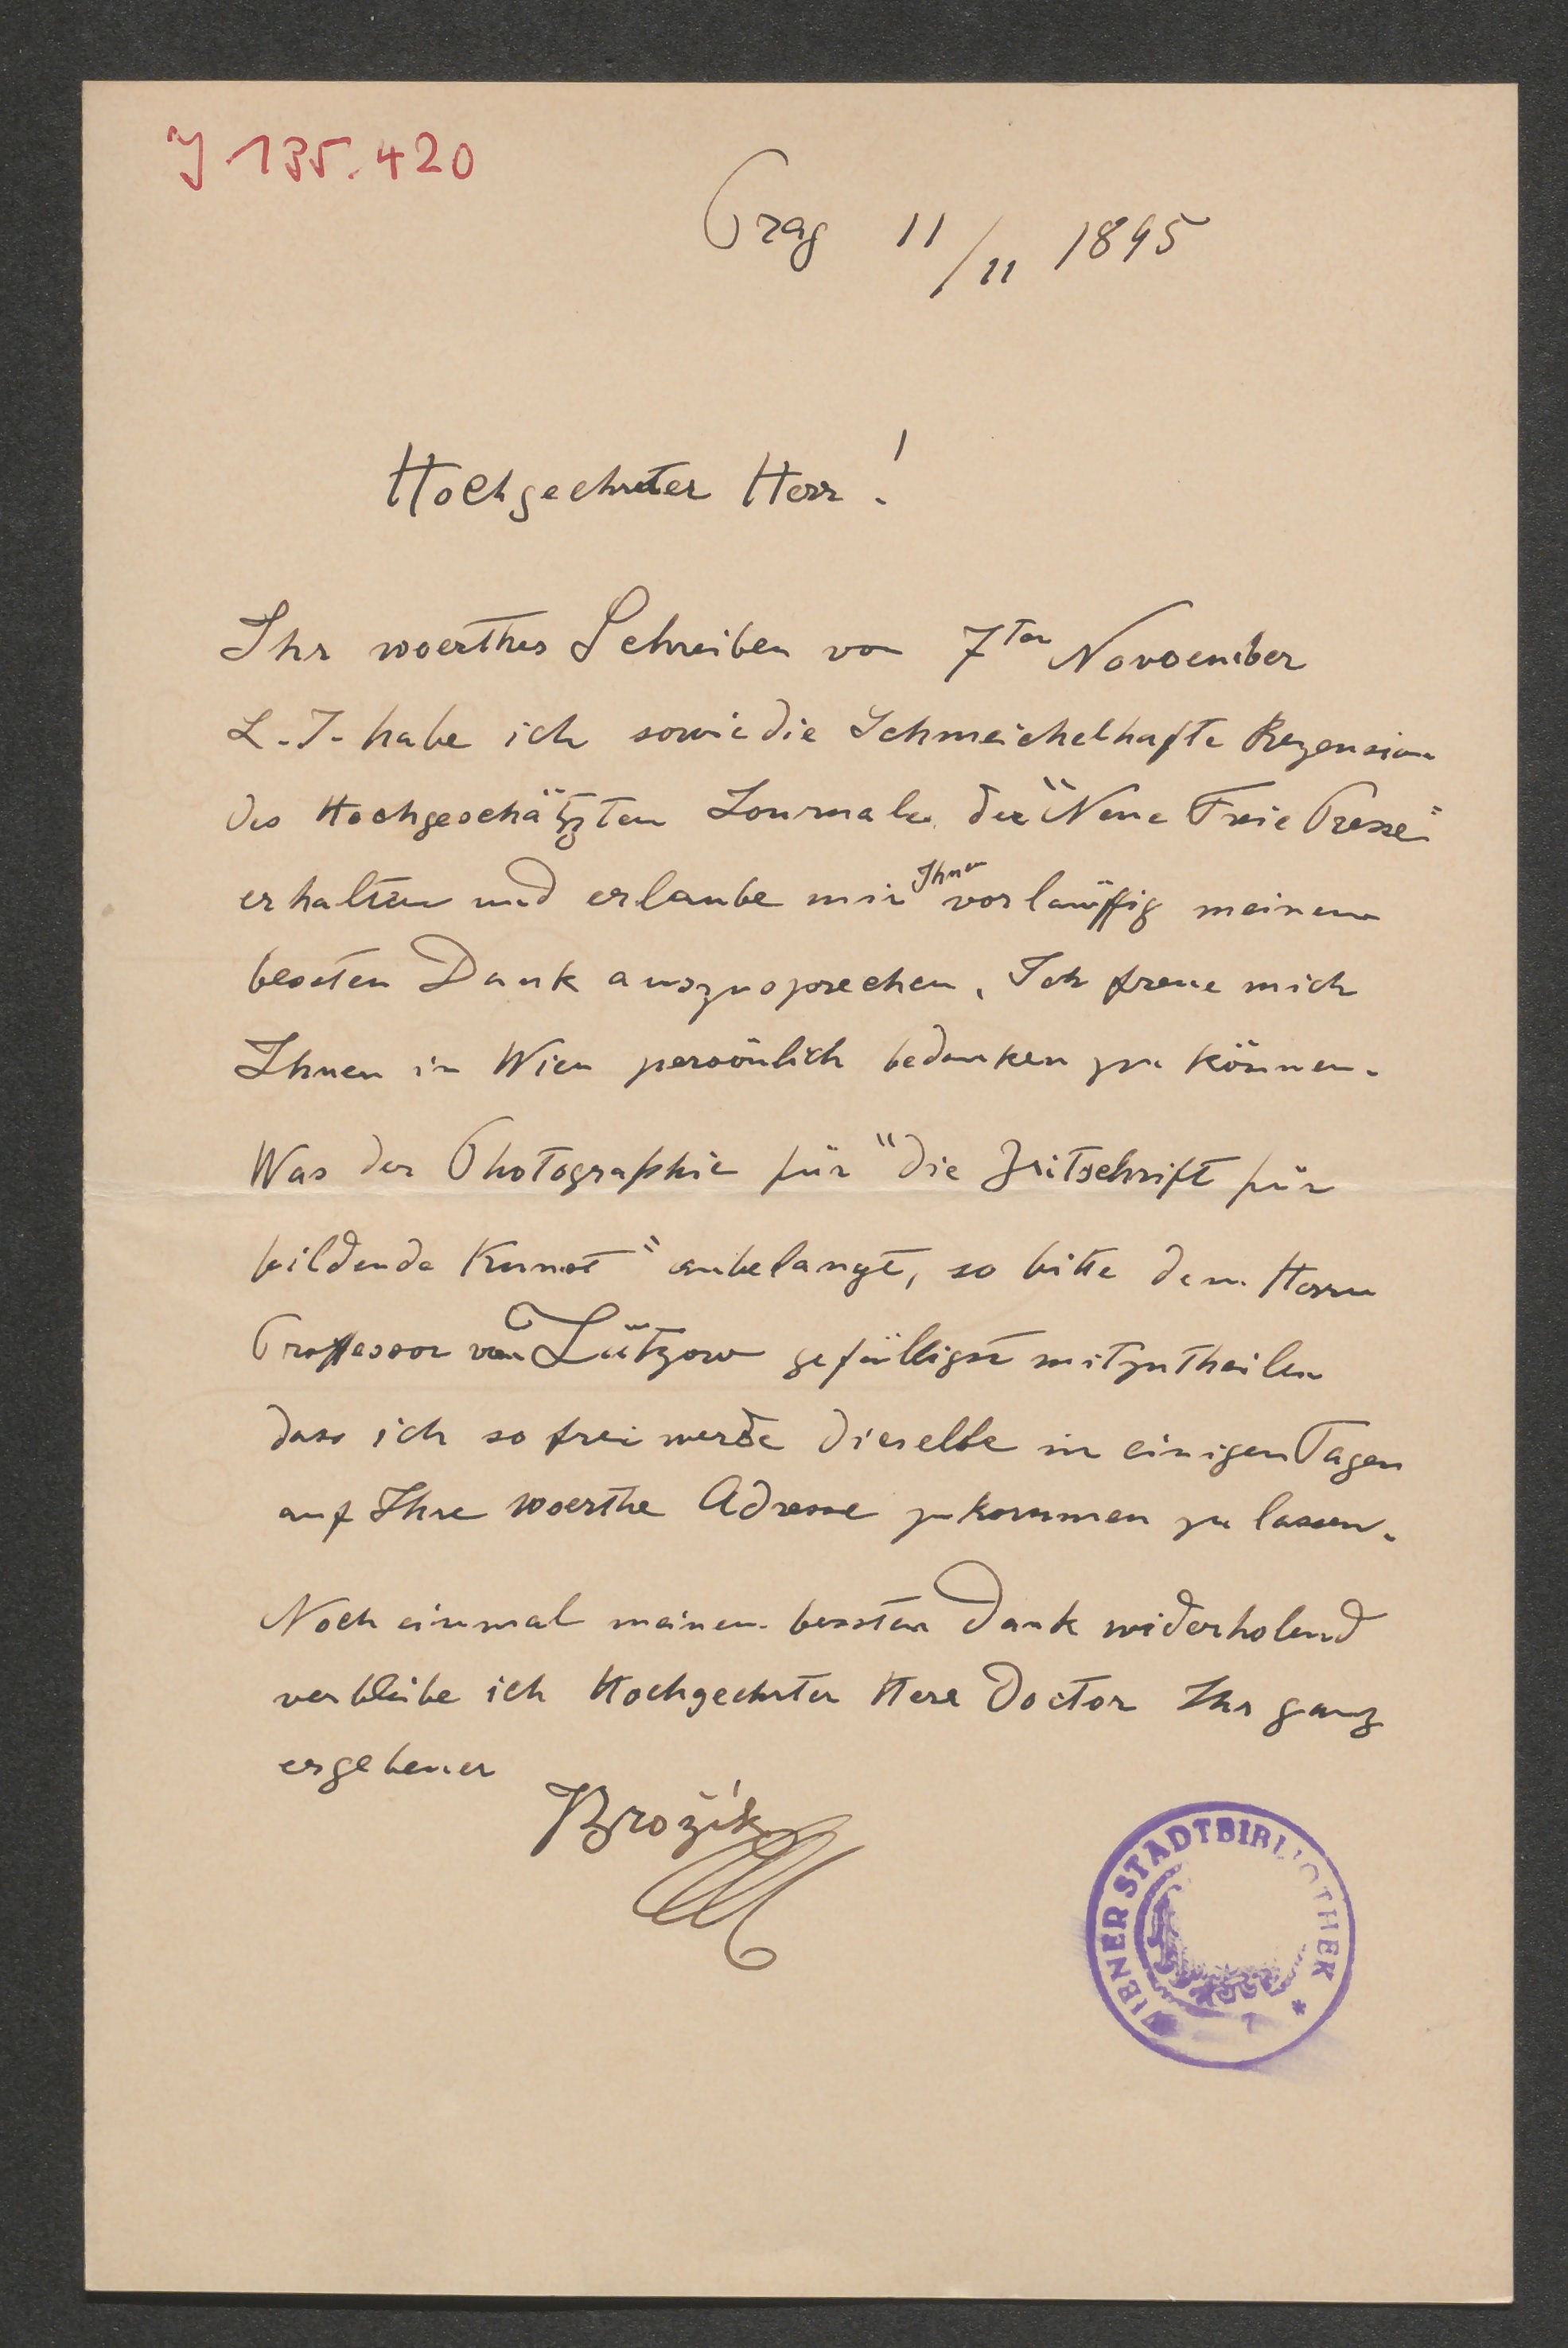 J 135.420
Prag 11/11 1895
Hochgeehrter Herr!
Ihr werthes Schreiben von 7ten November
L. J. habe ich sowie die Schmeichelhafte Rezension
des Hochgeschätzten Journales der "Neue Freie Presse"
erhalten und erlaube mir Ihnen vorläuffig meinen
besten Dank auszusprechen. Ich freue mich
Ihnen in Wien persönlich bedanken zu können.
Was der Photographie für "die Zeitschrift für
bildende Kunst" anbelangt, so bitte dem Herrn
Proffessor von Lützow gefälligst mitzutheilen
dass ich so frei werde dieselbe in einigen Tagen
auf Ihre werthe Adresse zukommen zu lassen.
Noch einmal meinen bessten Dank widerholend
verbleibe ich Hochgeehrter Herr Doctor Ihr ganz
ergebener
Brožík
WIENER STADTBIBLIOTHEK *